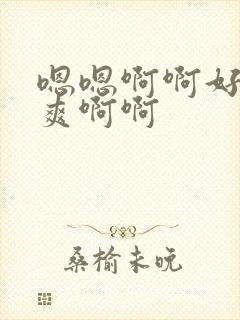 嗯嗯啊啊好
爽啊啊
桑榆未晚